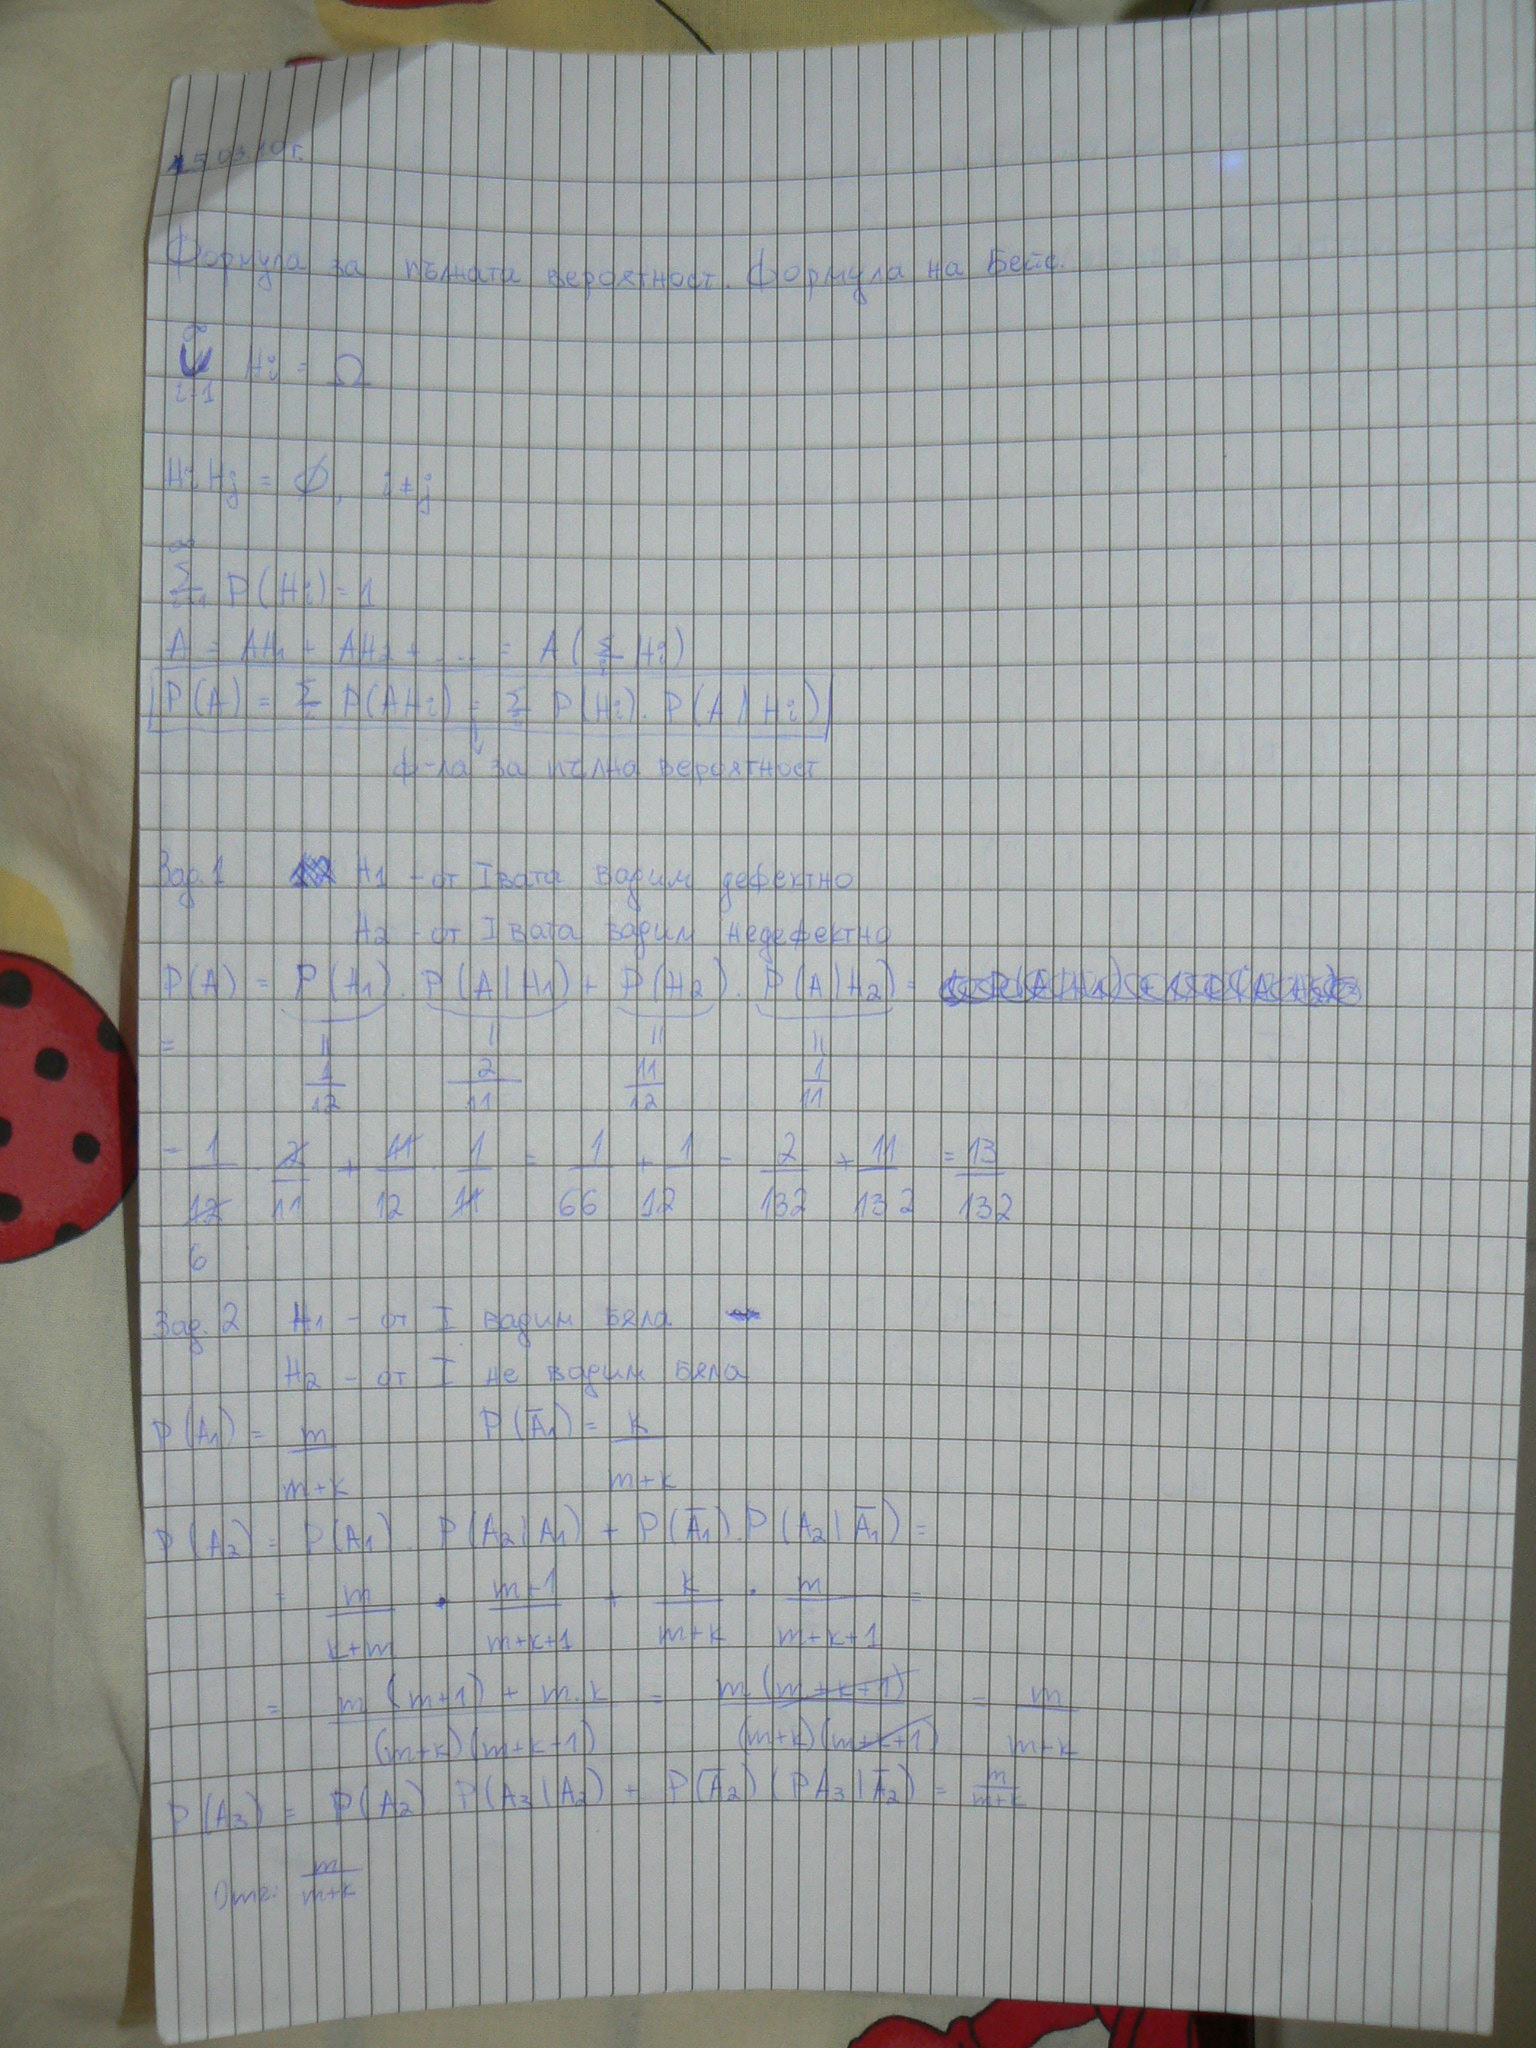 15.03.10г.
Формула за пълната вероятност. Формула на Бейс.
∞
∪ Hi = Ω
i=1
Hi Hj = ∅, i ≠ j
∞
Σ P(Hi) = 1
i=1
A = AH1 + AH2 + ... = A(Σ Hi)
i
P(A) = Σ P(AHi) = Σ P(Hi). P(A|Hi)
ф-ла за пълна вероятност
Зад.1 H1 - от Iвата вадим дефектно
H2 - от Iвата вадим недефектно
P(A) = P(H1). P(A|H1) + P(H2). P(A|H2) =
= 1/12 2/11 11/12 1/11
= 1/12 . 2/11 + 11/12 . 1/11 = 1/66 + 1/12 = 2/132 + 11/132 = 13/132
6
Зад. 2 H1 - от I вадим бяла
H2 - от I не вадим бяла
P(A1) = m/m+k P(A̅1) = k/m+k
P(A2) = P(A1). P(A2|A1) + P(A̅1). P(A2|A̅1) =
= m/k+m . m+1/m+k+1 + k/m+k . m/m+k+1 =
= m(m+1) + m.k/(m+k)(m+k+1) = m(m+k+1)/(m+k)(m+k+1) = m/m+k
P(A3) = P(A2). P(A3|A2) + P(A̅2)(PA3|A̅2) = m/m+k
Отг: m/m+k